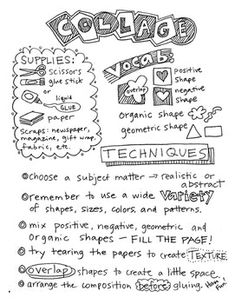 COLLAGE
SUPPLIES:
scissors
glue stick
or
liquid
GLUE
paper
Scraps: newspaper,
magazine, gift wrap,
fabric, etc.
Vocab:
overlap
positive
shape
negative
shape
organic shape
geometric shape
TECHNIQUES
choose a subject matter → realistic or
abstract
remember to use a wide Variety
of shapes, sizes, colors, and patterns.
mix positive, negative, geometric and
organic shapes — FILL THE PAGE!
try tearing the papers to create TEXTURE.
overlap shapes to create a little space.
arrange the composition before gluing.